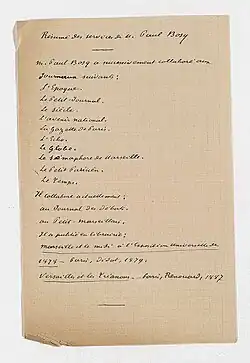 Résumé des services de M. Paul Bosq
M. Paul Bosq a anciennement collaboré aux
Journaux suivants :
L'Epoque.
Le Petit Journal.
Le Siècle.
L'avenir national.
La Gazette de Paris.
L'Echo.
Le Globe.
Le Sémaphore de Marseille.
Le Petit Parisien.
Le Temps.
Il collabore actuellement :
au Journal des Débats.
au Petit Marseillais.
Il a publié en librairie :
Marseille et le midi à l'Exposition universelle de
1878 — Paris, Didot, 1879.
Versailles et les Trianons — Paris, Renouard, 1887.